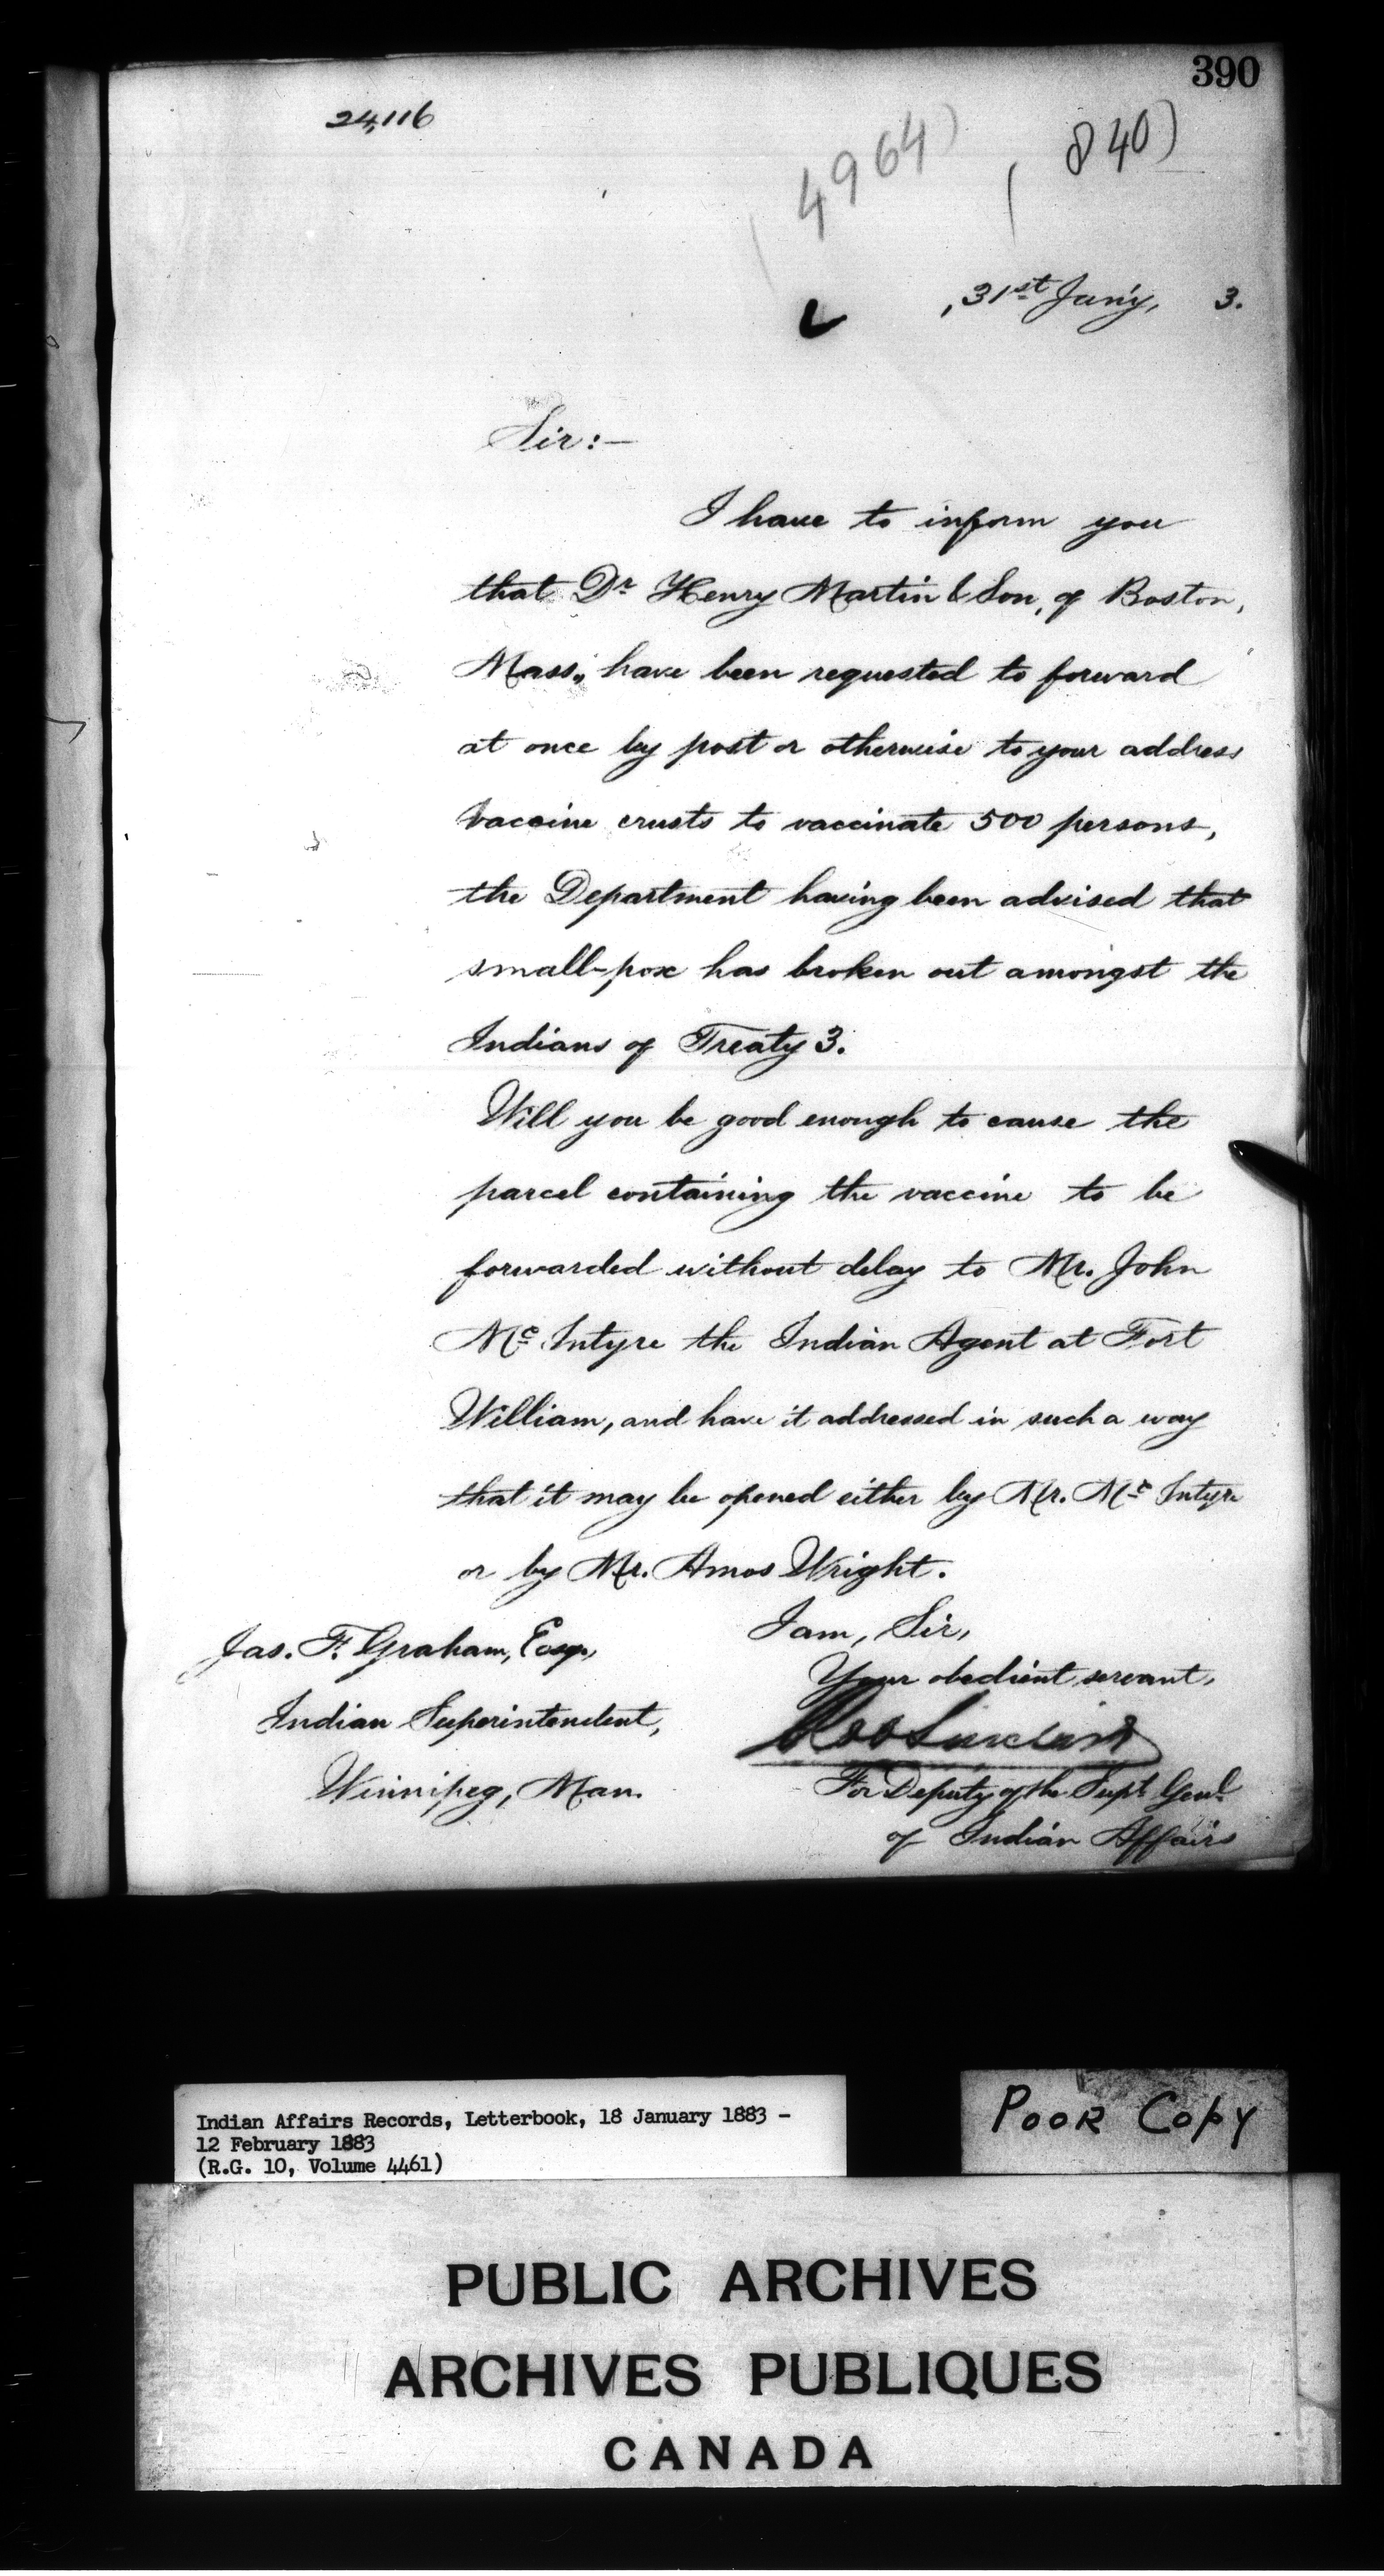 390
24,116
4964)
(840)
, 31st Jan'y, 3.
Sir:—
I have to inform you
that Dr Henry Martin & Son, of Boston,
Mass., have been requested to forward
at once by post or otherwise to your address
vaccine crusts to vaccinate 500 persons,
the Department having been advised that
small-pox has broken out amongst the
Indians of Treaty 3.
Will you be good enough to cause the
parcel containing the vaccine to be
forwarded without delay to Mr. John
Mc Intyre the Indian Agent at Fort
William, and have it addressed in such a way
that it may be opened either by Mr. Mc Intyre
or by Mr. Amos Wright.
I am, Sir,
Your obedient servant,
Sinclair
For Deputy of the Supt Genl
of Indian Affairs
Jas. F. Graham, Esq.,
Indian Superintendent,
Winnipeg, Man.
Indian Affairs Records, Letterbook, 18 January 1883 -
12 February 1883
(R.G. 10, Volume 4461)
POOR COPY
PUBLIC ARCHIVES
ARCHIVES PUBLIQUES
CANADA